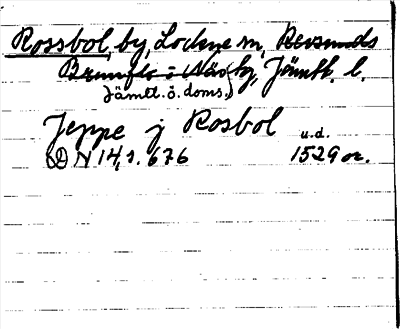 Rossbol, by, Lockne sn, Revsunds
Brunflo o Näs tg, Jämtl. l.
Jämtl. ö. doms.
Jeppe j Rosbol u.d.
D N 14, s. 676 1529 or.